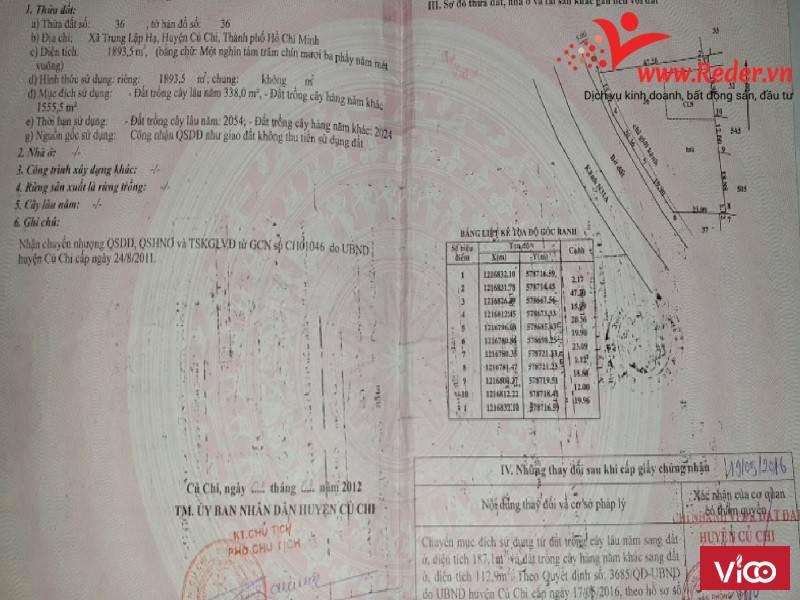 1. Thửa đất:
a) Thửa đất số: 36 , tờ bản đồ số: 36
b) Địa chỉ: Xã Trung Lập Hạ, Huyện Củ Chi, Thành phố Hồ Chí Minh
c) Diện tích: 1893,5 m², (bằng chữ: Một nghìn tám trăm chín mươi ba phẩy năm mét
vuông)
d) Hình thức sử dụng: riêng: 1893,5 m², chung: không m²
đ) Mục đích sử dụng: - Đất trồng cây lâu năm 338,0 m², - Đất trồng cây hàng năm khác
1555,5 m²
e) Thời hạn sử dụng: - Đất trồng cây lâu năm: 2054; - Đất trồng cây hàng năm khác: 2024
g) Nguồn gốc sử dụng: Công nhận QSDĐ như giao đất không thu tiền sử dụng đất
2. Nhà ở: -/-
3. Công trình xây dựng khác: -/-
4. Rừng sản xuất là rừng trồng: -/-
5. Cây lâu năm: -/-
6. Ghi chú:
Nhận chuyển nhượng QSDĐ, QSHNƠ và TSKGLVĐ từ GCN số CH01046 do UBND
huyện Củ Chi cấp ngày 24/8/2011.
Củ Chi, ngày tháng năm 2012
TM. ỦY BAN NHÂN DÂN HUYỆN CỦ CHI
KT.CHỦ TỊCH
PHÓ CHỦ TỊCH
III. Sơ đồ thửa đất, nhà ở và tài sản khác gắn liền với đất
www.Reder.vn
Dịch vụ kinh doanh, bất động sản, đầu tư
5.00
47.20
33
CLN
12.00
543
chỉ giới kênh
20.36
Bờ đất
19.90
Kênh N31A
18.68
505
23.09
37
BẢNG LIỆT KÊ TỌA ĐỘ GÓC RANH
Số hiệu điểm Tọa độ Cạnh
X(m) Y(m)
1 1216832.10 578716.59
2.17
2 1216831.78 578714.45
47.20
3 578667.56
4 1216812.45
20.36
5
19.90
6
23.09
7
1.12
8
18.68
9
12.00
10 1216812.22 578718.41
19.96
1 1216832.10 578716.59
IV. Những thay đổi sau khi cấp giấy chứng nhận
19/05/2016
Nội dung thay đổi và cơ sở pháp lý
Xác nhận của cơ quan
có thẩm quyền
HUYỆN CỦ CHI
Chuyển mục đích sử dụng từ đất trồng cây lâu năm sang đất
ở, diện tích 187,1m² và đất trồng cây hàng năm khác sang đất
ở, diện tích 112,9m² Theo Quyết định số. 3685/QĐ-UBND
do UBND huyện Củ Chi cấp ngày 17/05/2016, theo hồ sơ số
Vicc